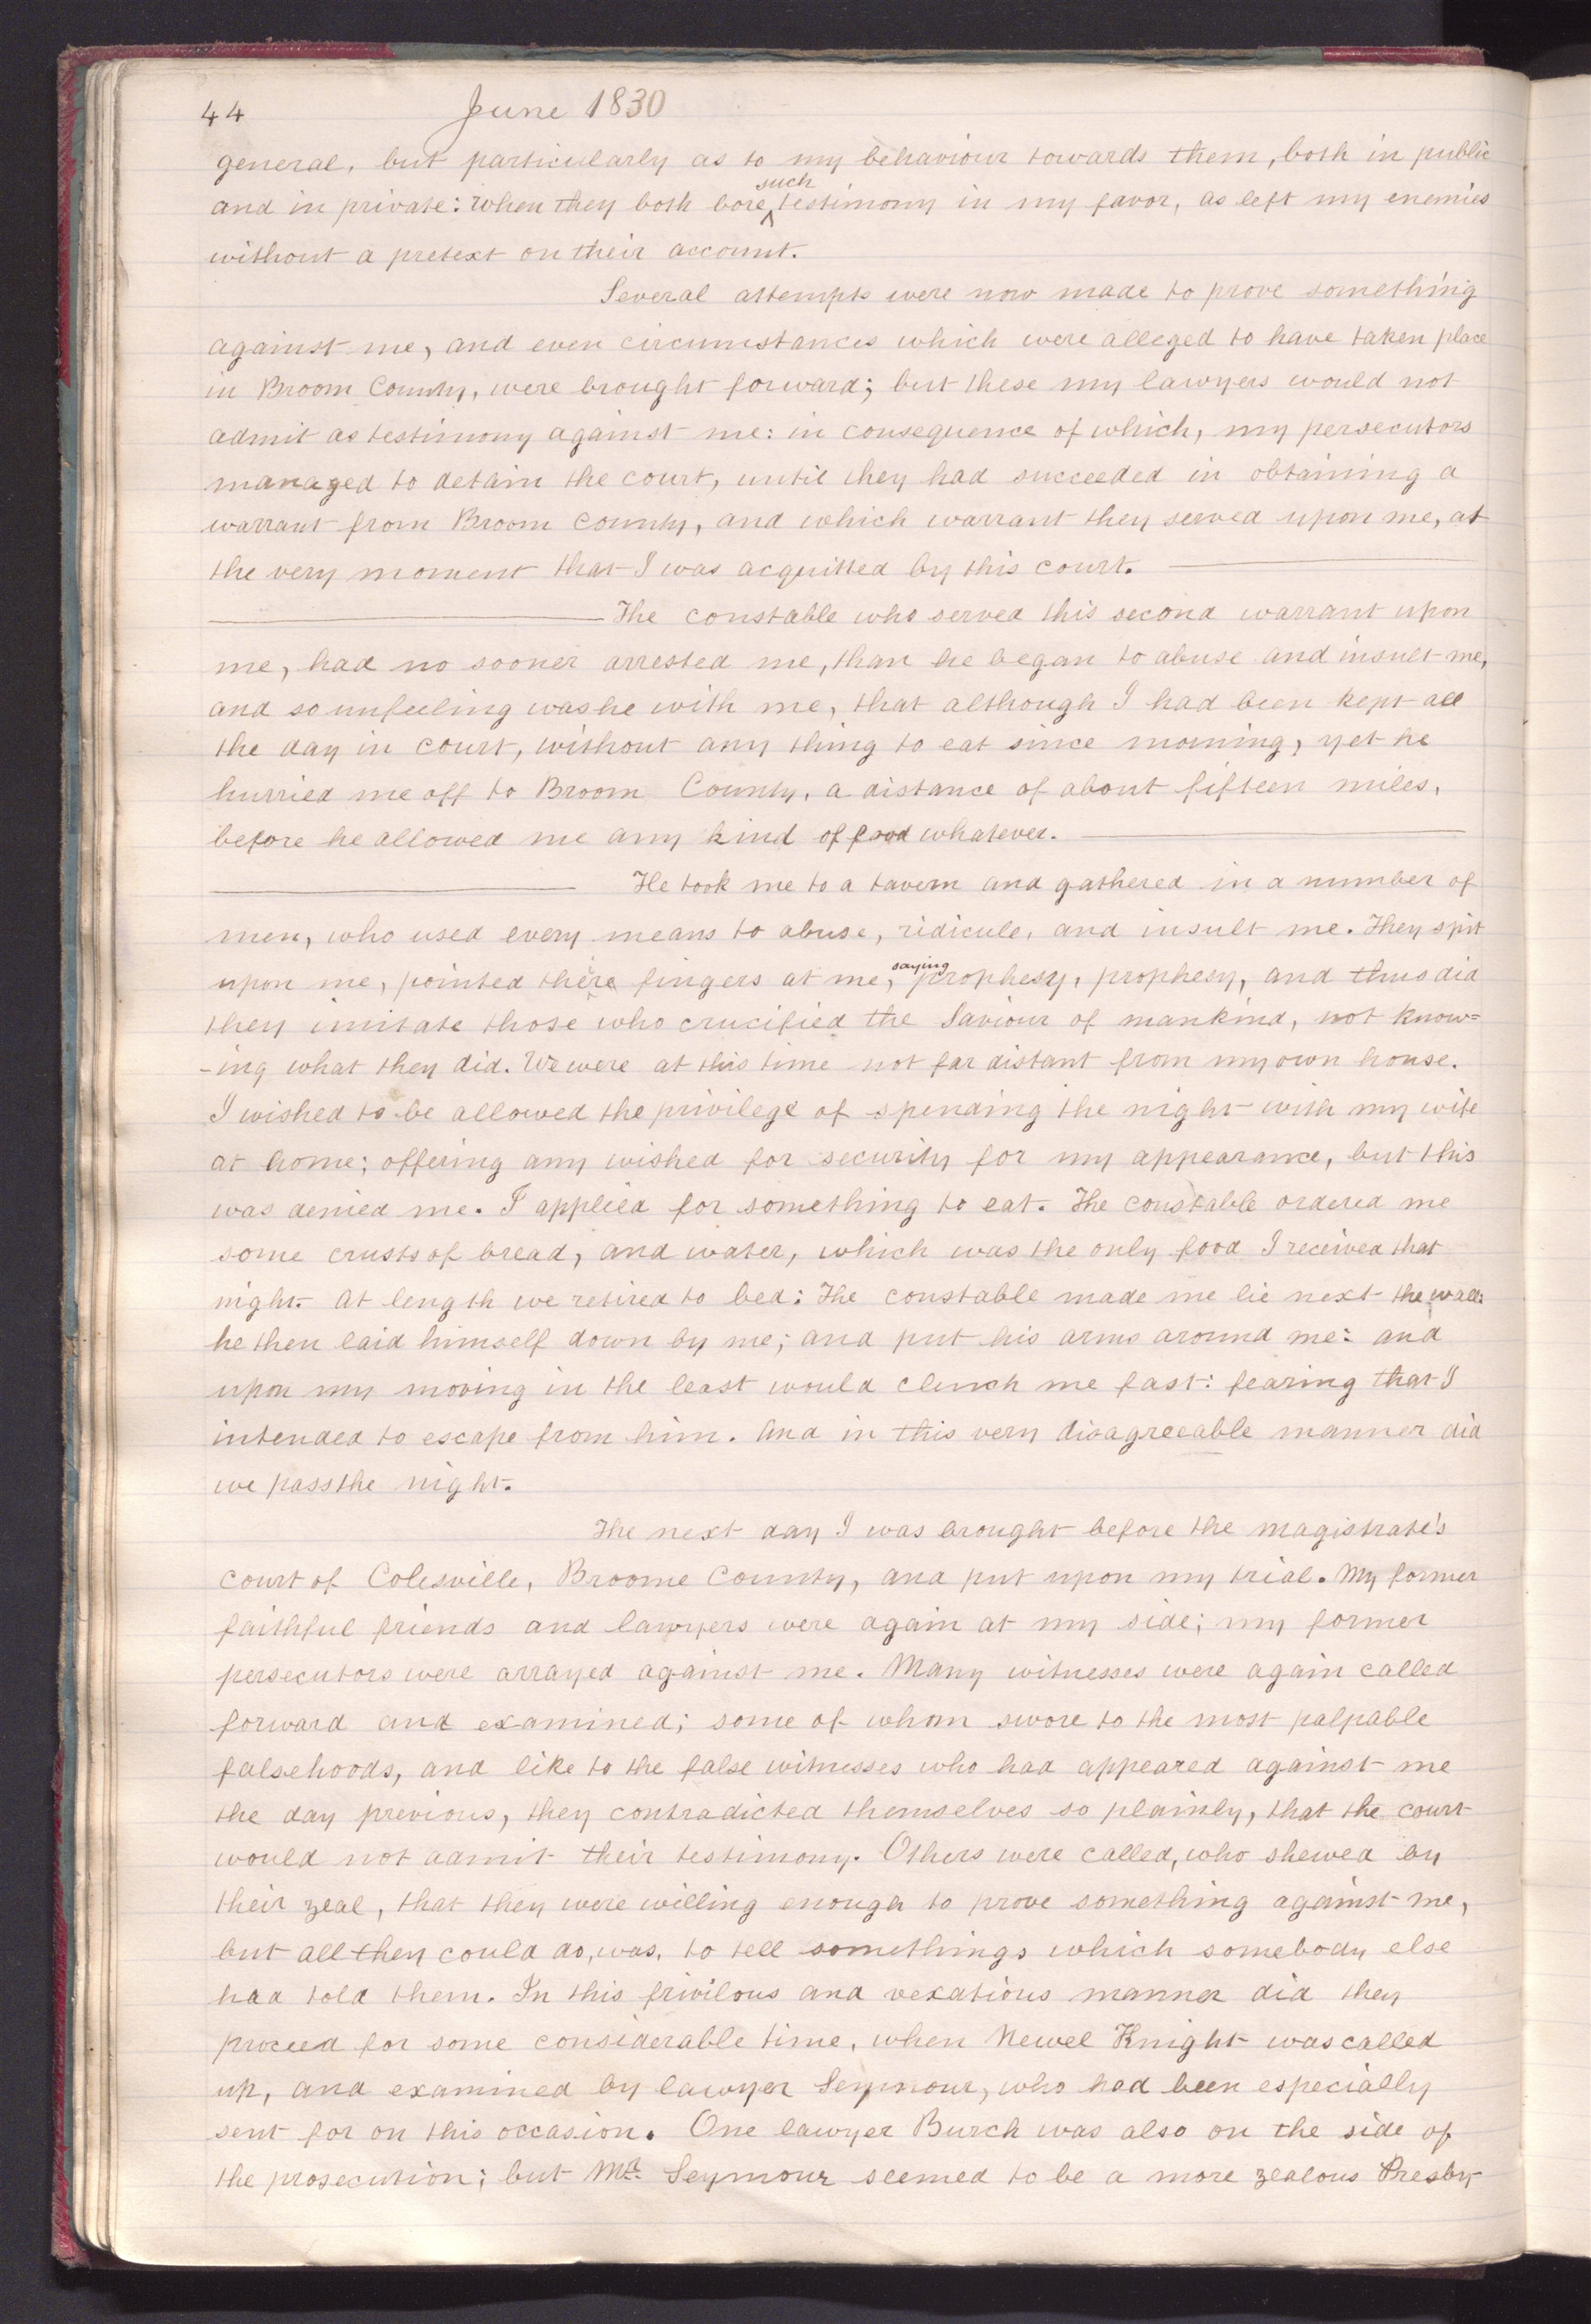 44 June 1830
general, but particularly as to my behaviour towards them, both in public
and in private: When they both bore such testimony in my favor, as left my enemies
without a pretext on their account.
Several attempts were now made to prove something
against me, and even circumstances which were alleged to have taken place
in Broom County, were brought forward; but these my lawyers would not
admit as testimony against me: in consequence of which, my persecutors
managed to detain the court, until they had succeeded in obtaining a
warrant from Broom County, and which warrant they served upon me, at
the very moment that I was acquitted by this court.
The constable who served this second warrant upon
me, had no sooner arrested me, than he began to abuse and insult me,
and so unfeeling was he with me, that although I had been kept all
the day in court, without any thing to eat since morning, yet he
hurried me off to Broom County, a distance of about fifteen miles,
before he allowed me any kind of food whatever.
He took me to a tavern and gathered in a number of
men, who used every means to abuse, ridicule, and insult me. They spit
upon me, pointed there fingers at me, saying prophesy, prophesy, and thus did
they imitate those who crucified the Saviour of mankind, not know=
-ing what they did. We were at this time not far distant from my own house.
I wished to be allowed the privilege of spending the night with my wife
at home; offering any wished for security for my appearance, but this
was denied me. I applied for something to eat. The constable ordered me
some crusts of bread, and water, which was the only food I received that
night. At length we retired to bed: The constable made me lie next the wall:
he then laid himself down by me; and put his arms around me: and
upon my moving in the least would clench me fast: fearing that I
intended to escape from him. And in this very disagreeable manner did
we pass the night.
The next day I was brought before the magistrate's
court of Colesville, Broome County, and put upon my trial. My former
faithful friends and lawyers were again at my side; my former
persecutors were arrayed against me. Many witnesses were again called
forward and examined; some of whom swore to the most palpable
falsehoods, and like to the false witnesses who had appeared against me
the day previous, they contradicted themselves so plainly, that the court
would not admit their testimony. Others were called, who shewed by
their zeal, that they were willing enough to prove something against me,
but all they could do, was, to tell somethings which somebody else
had told them. In this frivilous and vexatious manner did they
proceed for some considerable time, when Newel Knight was called
up, and examined by lawyer Seymour, who had been especially
sent for on this occasion. One lawyer Burch was also on the side of
the prosecution; but Mr. Seymour seemed to be a more zealous Presby-